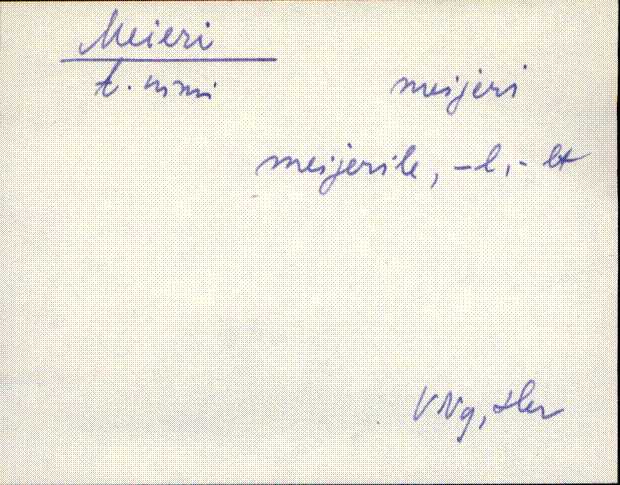 Meieri
t. nimi meijeri
meijerile, -l, -lt
VNg,